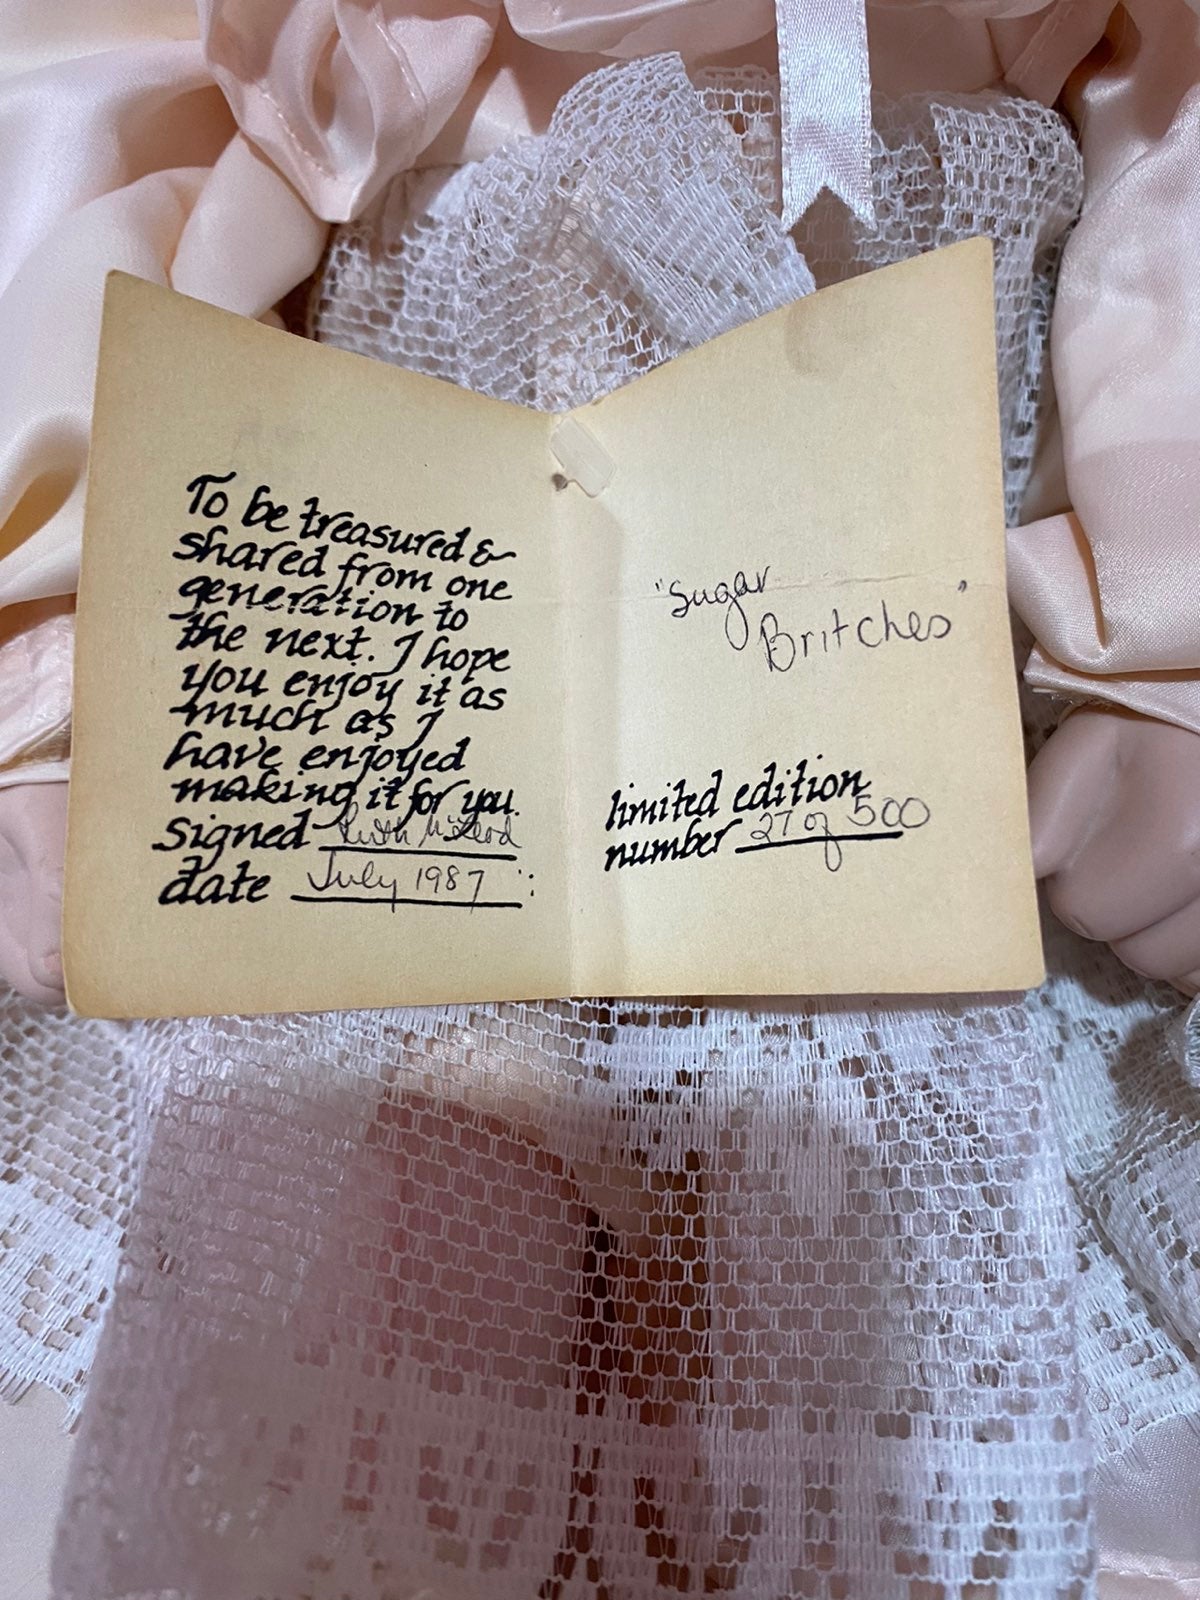 To be treasured &
shared from one
generation to
the next. I hope
you enjoy it as
much as I
have enjoyed
making it for you.
signed Ruth McLeod
date July 1987
"Sugar
Britches"
limited edition
number 27 of 500